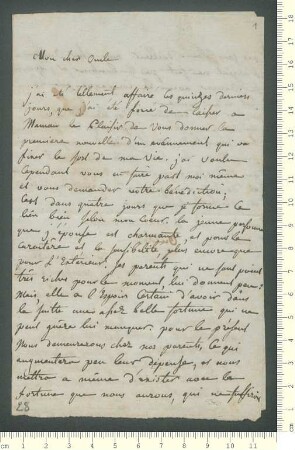 1
Mon cher Oncle
j'ai été tellement affairé les quinzes derniers
jours, que j'ai été forcé de laisser à
Maman le Plaisir de vous donner la
première nouvelle d'un evenement qui va
fixer le sort de ma vie. j'ai voulu
cependant vous en faire part moi même
et vous demander votre bénédiction;
C'est dans quatre jours que je forme le
lien béni selon mon Coeur. la jeune personne
que j'epouse est charmante, et pour le
caractère et la sensibilité plus encore que
pour l'Exterieur. ses parents qui ne sont point
très riches pour le moment, lui donnent peu:
Mais elle a l'Espoir certain d'avoir dans
la suite une assez belle fortune qui ne
peut guère lui manquer. pour le présent
Nous demeurerons chez nos parents, ce qui
augmentera peu leur dépense, et nous
mettra à même d'exister avec la
fortune que nous aurons, qui ne suffiroit
28